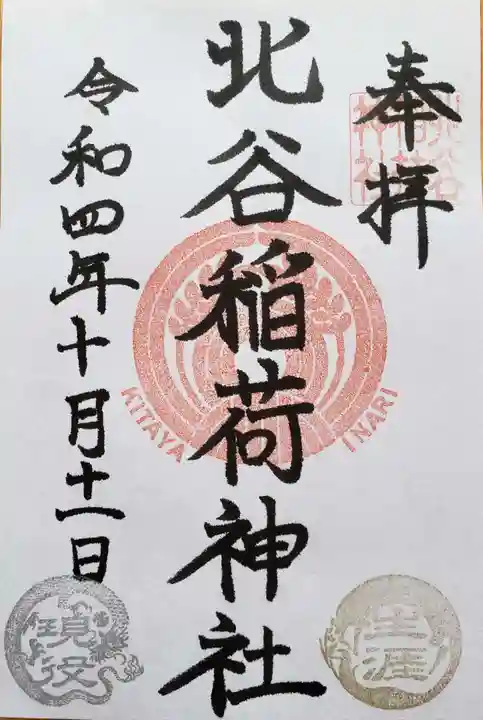 奉拝
北谷稲荷神社
令和四年十月十一日
KITAYA INARI
北谷稲荷神社
生涯
現役